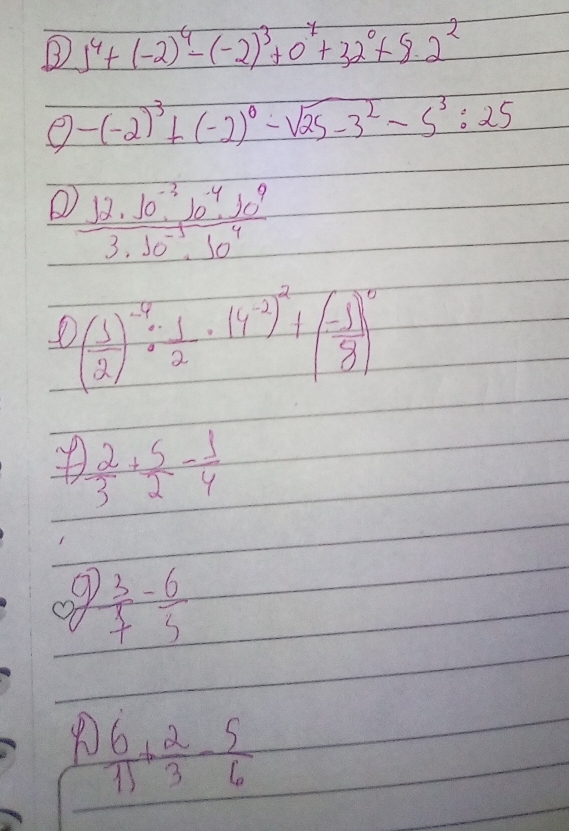 B) 1⁴ + (-2)⁴ - (-2)³ + 0⁷ + 32⁰ + 8 . 2²
C) -(-2)³ + (-2)⁰ - √25 - 3² - 5³ : 25
D) 12 . 10⁻³ . 10⁻⁴ . 10⁹ / 3 . 10⁻¹ . 10⁴
E) (1/2)⁻⁴ : 1/2 . (4⁻²)² + (-1/8)⁰
F) 2/3 + 5/2 - 1/4
g) 3/7 - 6/5
h) 6/15 + 2/3 - 5/6